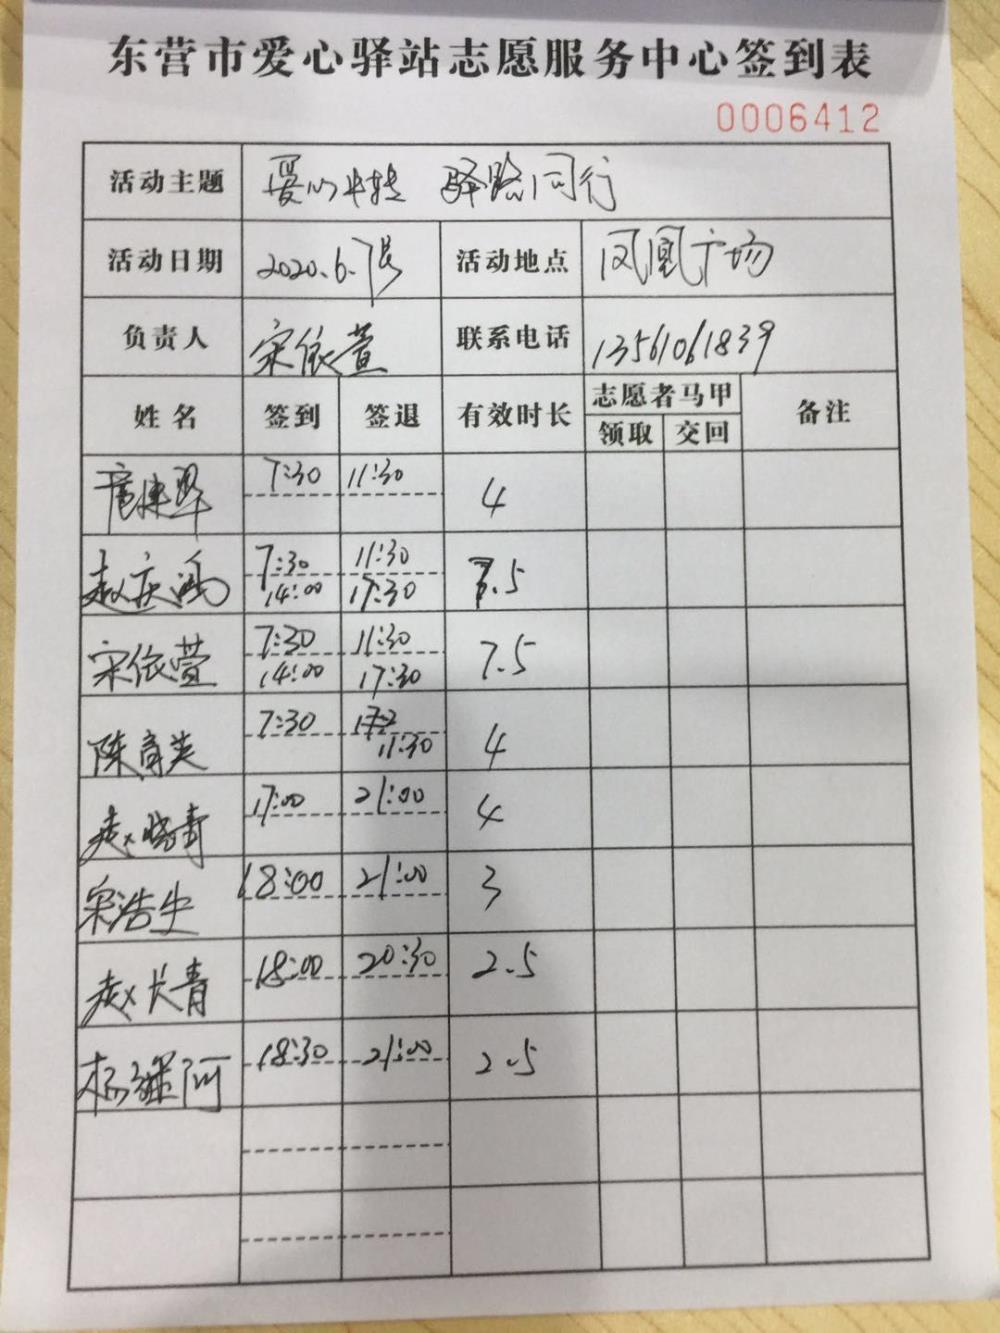 东营市爱心驿站志愿服务中心签到表
0006412
活动主题 爱心 驿路同行
活动日期 2020.6. 活动地点 凤凰广场
负责人 宋依萱 联系电话 13561061839
姓名 签到 签退 有效时长 志愿者马甲 备注
领取 交回
7:30 11:30 4
赵庆鸿 7:30 11:30 7.5
14:00 17:30
宋依萱 7:30 11:30 7.5
14:00 17:30
陈育英 7:30 4
11:30
赵晓青 17:00 21:00 4
宋浩 18:00 21:00 3
赵长青 18:00 20:30 2.5
杨 18:30 21:00 2.5